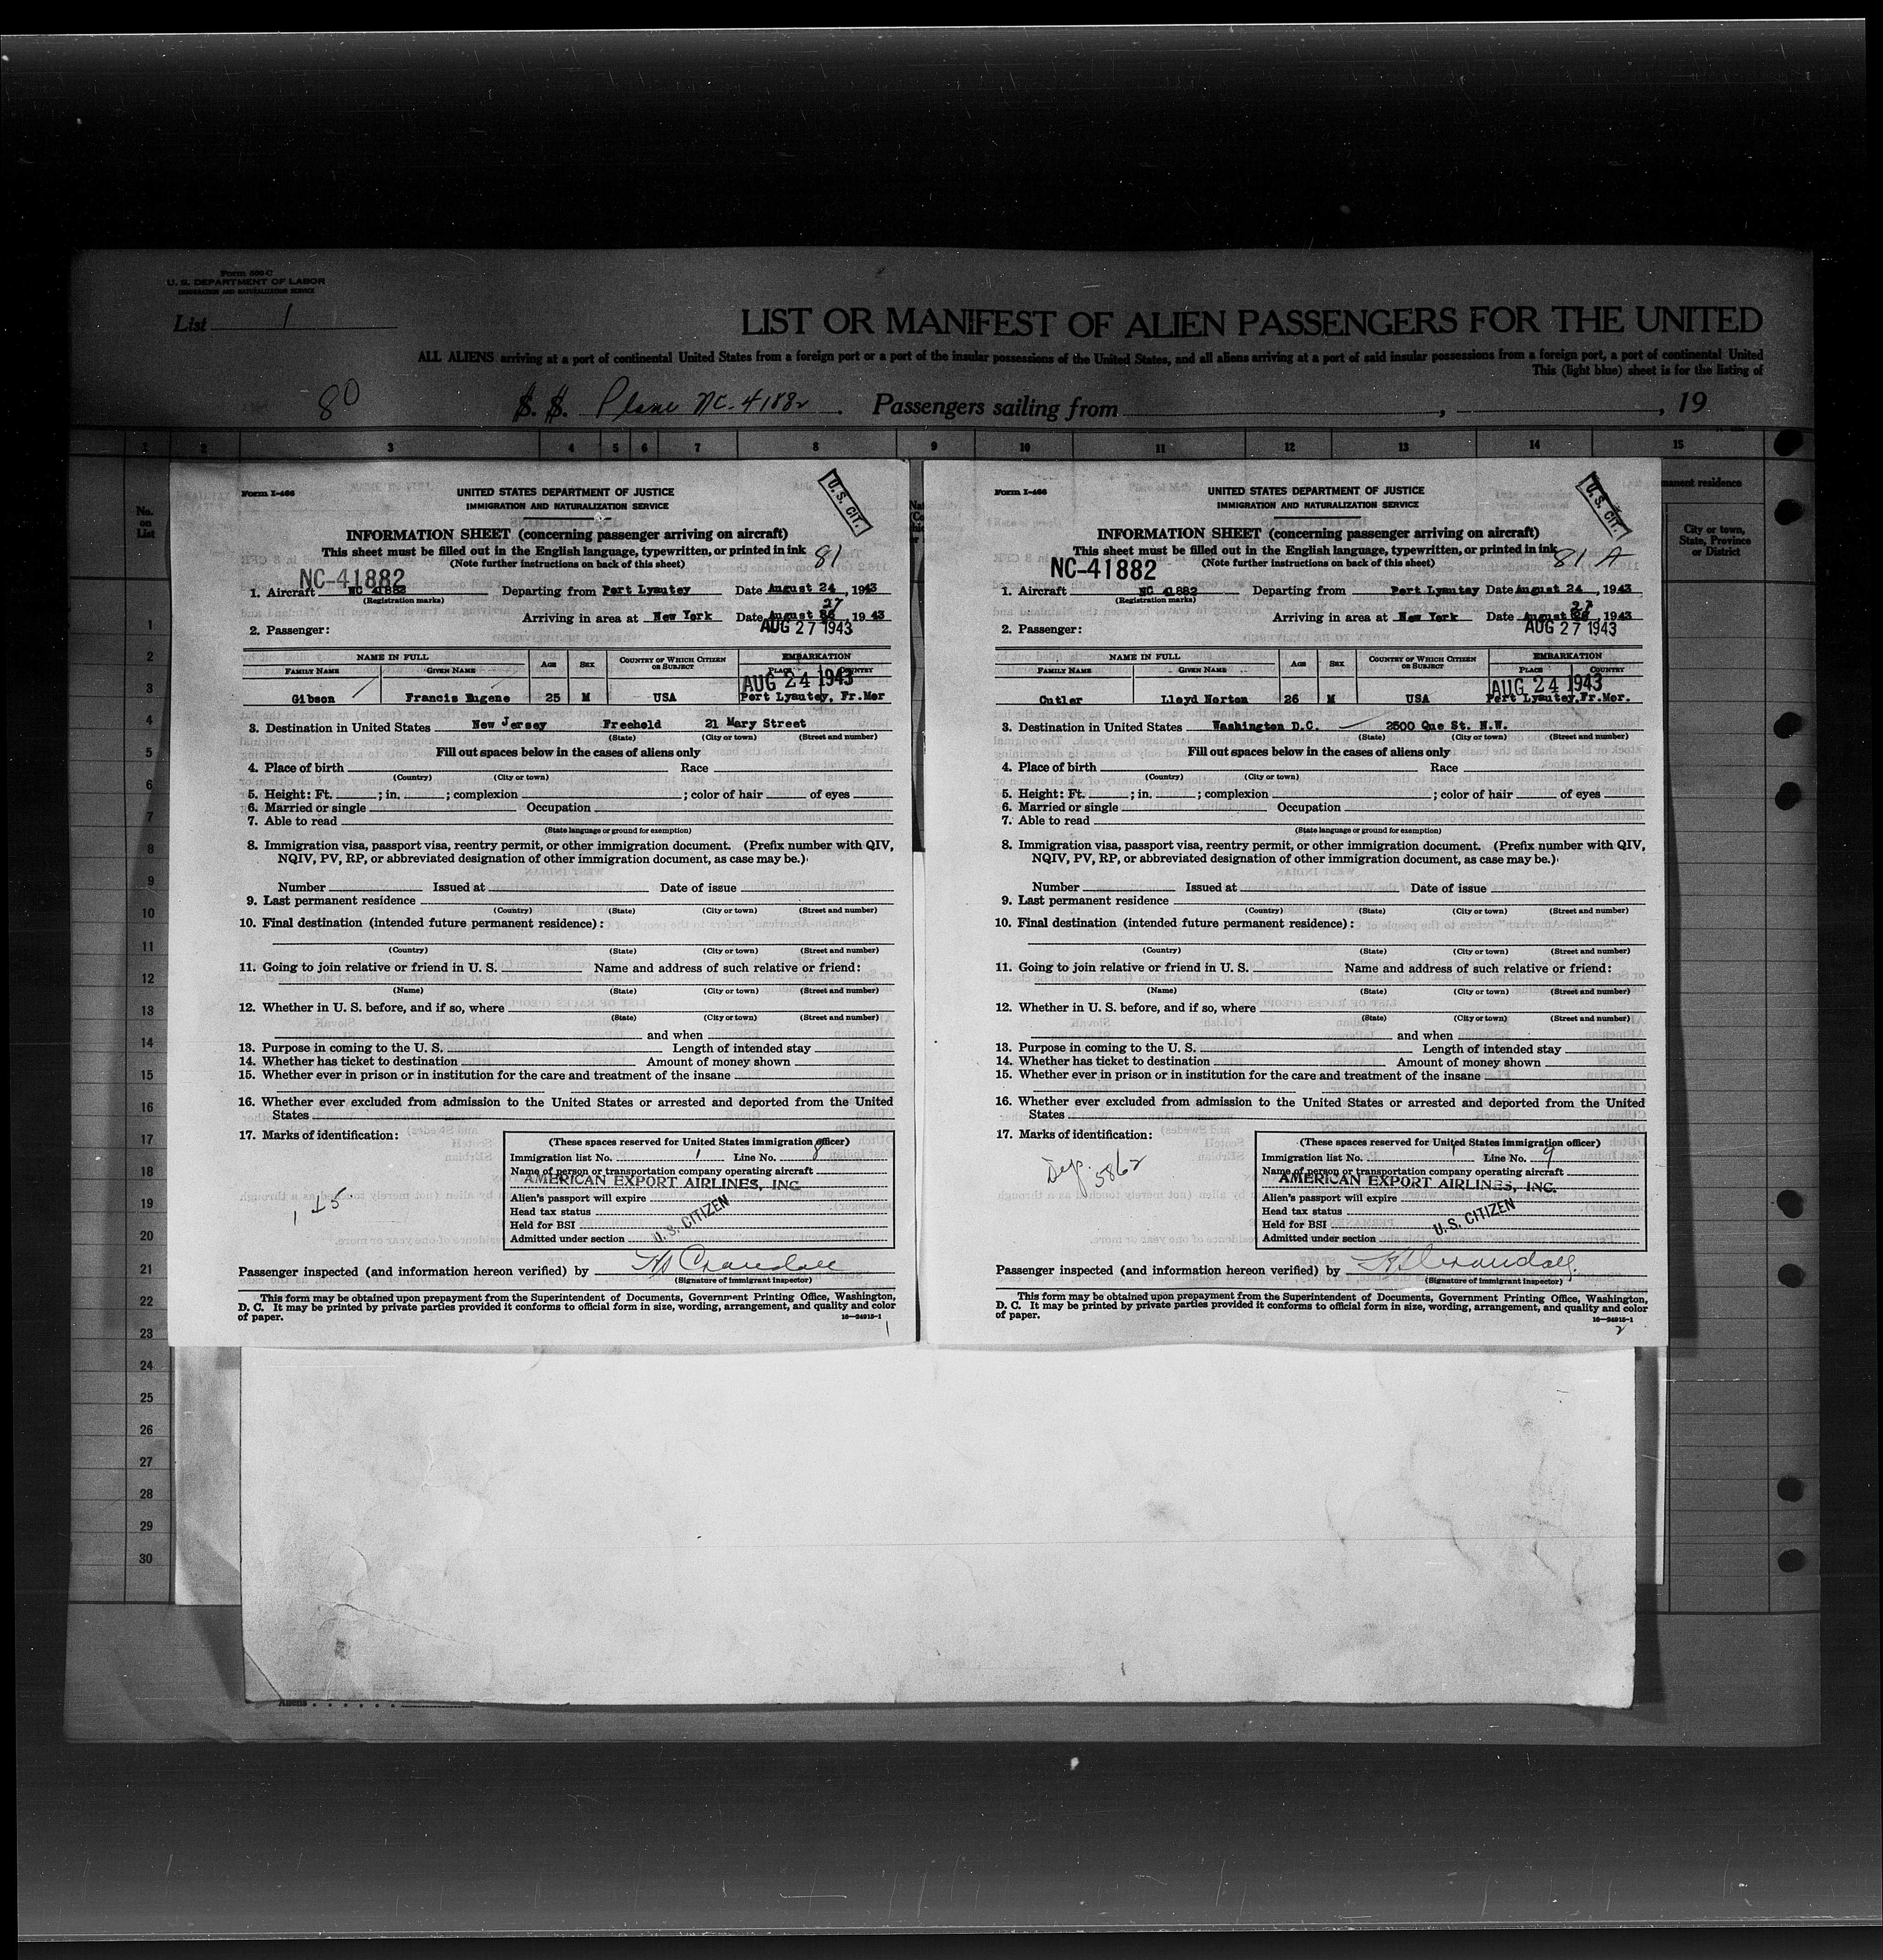 Form 500-C
U. S. DEPARTMENT OF LABOR
IMMIGRATION AND NATURALIZATION SERVICE
List 1
LIST OR MANIFEST OF ALIEN PASSENGERS FOR THE UNITED
ALL ALIENS arriving at a port of continental United States from a foreign port or a port of the insular possessions of the United States, and all aliens arriving at a port of said insular possessions from a foreign port, a port of continental United
This (light blue) sheet is for the listing of
80 S. S. Plane NC-41882. Passengers sailing from , , 19
1 2 3 4 5 6 7 8 9 10 11 12 13 14 15
No. on List
manent residence
City or town, State, Province or District
Form I-466
UNITED STATES DEPARTMENT OF JUSTICE
IMMIGRATION AND NATURALIZATION SERVICE
U. S. CIT.
INFORMATION SHEET (concerning passenger arriving on aircraft)
This sheet must be filled out in the English language, typewritten, or printed in ink
(Note further instructions on back of this sheet)
81
NC-41882
1. Aircraft NC 41882 Departing from Port Lyautey Date August 24, 1943
(Registration marks)
27
Arriving in area at New York Date August 26, 1943
AUG 27 1943
2. Passenger:
NAME IN FULL Age Sex COUNTRY OF WHICH CITIZEN OR SUBJECT EMBARKATION
FAMILY NAME GIVEN NAME PLACE COUNTRY
AUG 24 1943
Gibson Francis Eugene 25 M USA Port Lyautey, Fr.Mor
3. Destination in United States New Jersey Freehold 21 Mary Street
(State) (City or town) (Street and number)
Fill out spaces below in the cases of aliens only
4. Place of birth Race
(Country) (City or town)
5. Height: Ft. ; in. ; complexion ; color of hair of eyes
6. Married or single Occupation
7. Able to read
(State language or ground for exemption)
8. Immigration visa, passport visa, reentry permit, or other immigration document. (Prefix number with QIV,
NQIV, PV, RP, or abbreviated designation of other immigration document, as case may be.)
Number Issued at Date of issue
9. Last permanent residence
(Country) (State) (City or town) (Street and number)
10. Final destination (intended future permanent residence):
(Country) (State) (City or town) (Street and number)
11. Going to join relative or friend in U. S. Name and address of such relative or friend:
(Name) (State) (City or town) (Street and number)
12. Whether in U. S. before, and if so, where
(State) (City or town) (Street and number)
and when
13. Purpose in coming to the U. S. Length of intended stay
14. Whether has ticket to destination Amount of money shown
15. Whether ever in prison or in institution for the care and treatment of the insane
16. Whether ever excluded from admission to the United States or arrested and deported from the United
States
17. Marks of identification:
(These spaces reserved for United States immigration officer)
Immigration list No. 1 Line No. 8
Name of person or transportation company operating aircraft
AMERICAN EXPORT AIRLINES, INC.
Alien's passport will expire
Head tax status
Held for BSI
Admitted under section
U. S. CITIZEN
Passenger inspected (and information hereon verified) by H Crandall
(Signature of immigrant inspector)
This form may be obtained upon prepayment from the Superintendent of Documents, Government Printing Office, Washington,
D. C. It may be printed by private parties provided it conforms to official form in size, wording, arrangement, and quality and color
of paper.
16—24915-1
1
Form I-466
UNITED STATES DEPARTMENT OF JUSTICE
IMMIGRATION AND NATURALIZATION SERVICE
U. S. CIT.
INFORMATION SHEET (concerning passenger arriving on aircraft)
This sheet must be filled out in the English language, typewritten, or printed in ink
(Note further instructions on back of this sheet)
81 A
NC-41882
1. Aircraft NC 41882 Departing from Port Lyautey Date August 24, 1943
(Registration marks)
27
Arriving in area at New York Date August 26, 1943
AUG 27 1943
2. Passenger:
NAME IN FULL Age Sex COUNTRY OF WHICH CITIZEN OR SUBJECT EMBARKATION
FAMILY NAME GIVEN NAME PLACE COUNTRY
AUG 24 1943
Cutler Lloyd Norton 26 M USA Port Lyautey, Fr.Mor.
3. Destination in United States Washington D.C. 2500 Que St. N.W.
(State) (City or town) (Street and number)
Fill out spaces below in the cases of aliens only
4. Place of birth Race
(Country) (City or town)
5. Height: Ft. ; in. ; complexion ; color of hair of eyes
6. Married or single Occupation
7. Able to read
(State language or ground for exemption)
8. Immigration visa, passport visa, reentry permit, or other immigration document. (Prefix number with QIV,
NQIV, PV, RP, or abbreviated designation of other immigration document, as case may be.)
Number Issued at Date of issue
9. Last permanent residence
(Country) (State) (City or town) (Street and number)
10. Final destination (intended future permanent residence):
(Country) (State) (City or town) (Street and number)
11. Going to join relative or friend in U. S. Name and address of such relative or friend:
(Name) (State) (City or town) (Street and number)
12. Whether in U. S. before, and if so, where
(State) (City or town) (Street and number)
and when
13. Purpose in coming to the U. S. Length of intended stay
14. Whether has ticket to destination Amount of money shown
15. Whether ever in prison or in institution for the care and treatment of the insane
16. Whether ever excluded from admission to the United States or arrested and deported from the United
States
17. Marks of identification:
Dip. 5862
(These spaces reserved for United States immigration officer)
Immigration list No. 1 Line No. 9
Name of person or transportation company operating aircraft
AMERICAN EXPORT AIRLINES, INC.
Alien's passport will expire
Head tax status
Held for BSI
Admitted under section
U. S. CITIZEN
Passenger inspected (and information hereon verified) by H Crandall
(Signature of immigrant inspector)
This form may be obtained upon prepayment from the Superintendent of Documents, Government Printing Office, Washington,
D. C. It may be printed by private parties provided it conforms to official form in size, wording, arrangement, and quality and color
of paper.
16—24915-1
2
1
2
3
4
5
6
7
8
9
10
11
12
13
14
15
16
17
18
19
20
21
22
23
24
25
26
27
28
29
30
Aliens